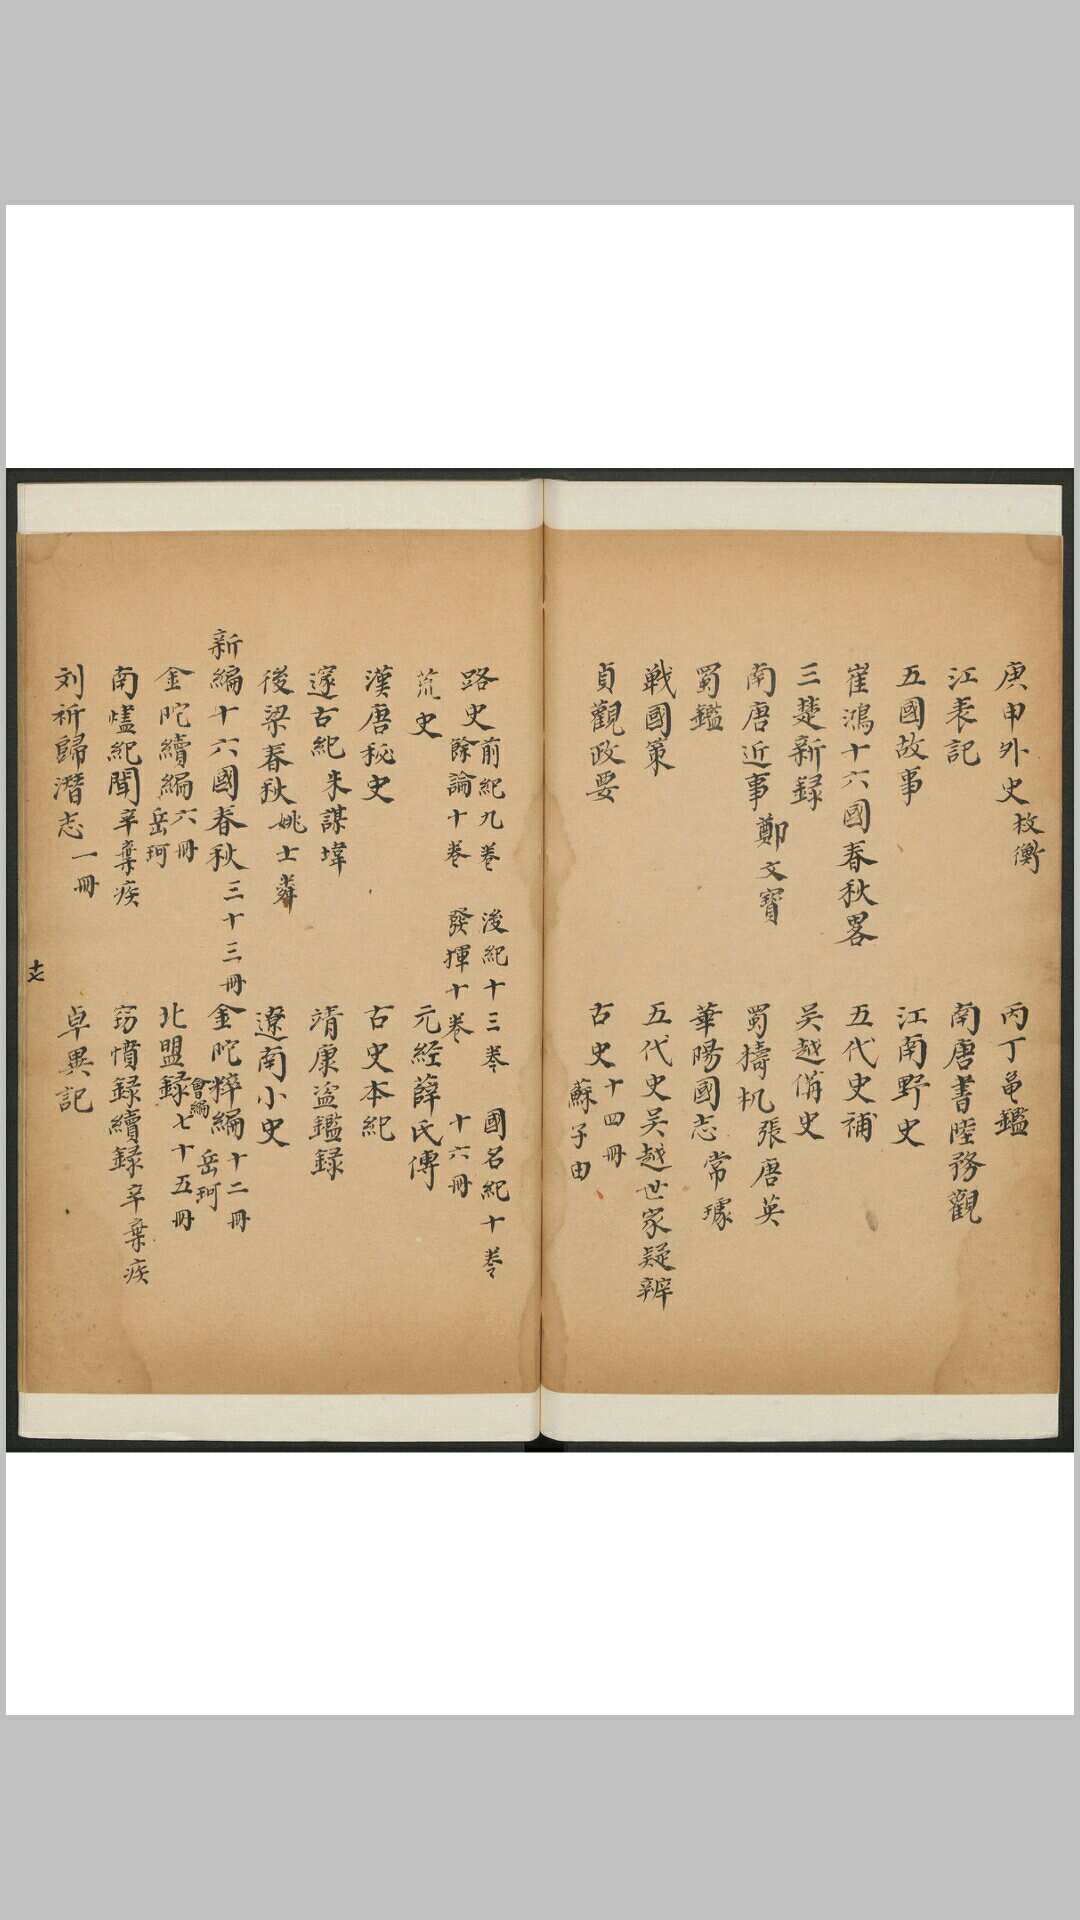 庚申外史 权衡
丙丁龜鑑
江表記
南唐書 陸務觀
五國故事
江南野史
崔鴻十六國春秋畧
五代史補
三楚新録
吴越備史
南唐近事 鄭文寶
蜀檮杌 張唐英
蜀鑑
華陽國志 常璩
戰國策
五代史吴越世家疑辨
貞觀政要
古史 十四冊 蘇子由
路史 前紀九卷 後紀十三卷 國名紀十卷
餘論十卷 發揮十卷 十六冊
荒史
元經薛氏傳
漢唐秘史
古史本紀
邃古紀 朱謀㙔
靖康盗鑑録
後梁春秋 姚士粦
遼南小史
新編十六國春秋 三十三冊
金陀粹編 十二冊 岳珂
金陀續編 六冊 岳珂
北盟録 會編 七十五冊
南燼紀聞 辛棄疾
竊憤録續録 辛棄疾
刘祈歸潛志 一冊
卓異記
十七